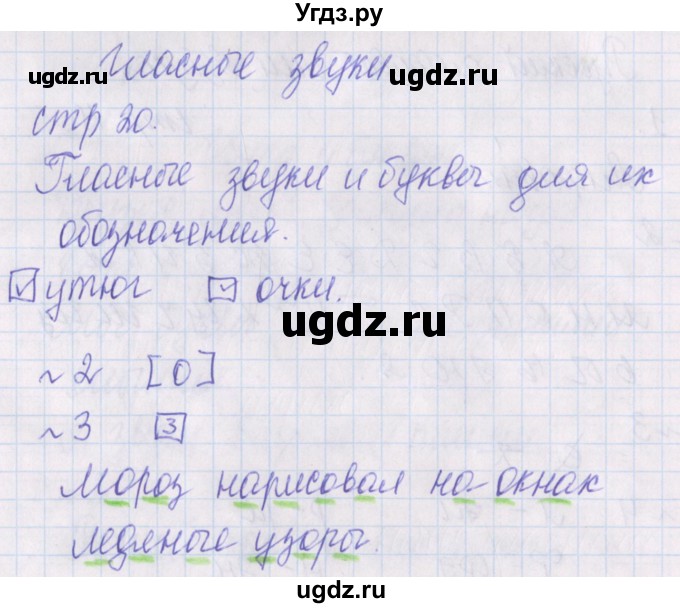 Угдз.ру
Гласные звуки
ugdz.ru ugdz.ru
стр 20.
Гласные звуки и буквы для их
обозначения.
утюг очки.
ugdz.ru
~ 2 [о]
~ 3 3
Мороз нарисовал на окнах
ледяные узоры.
ugdz.ru